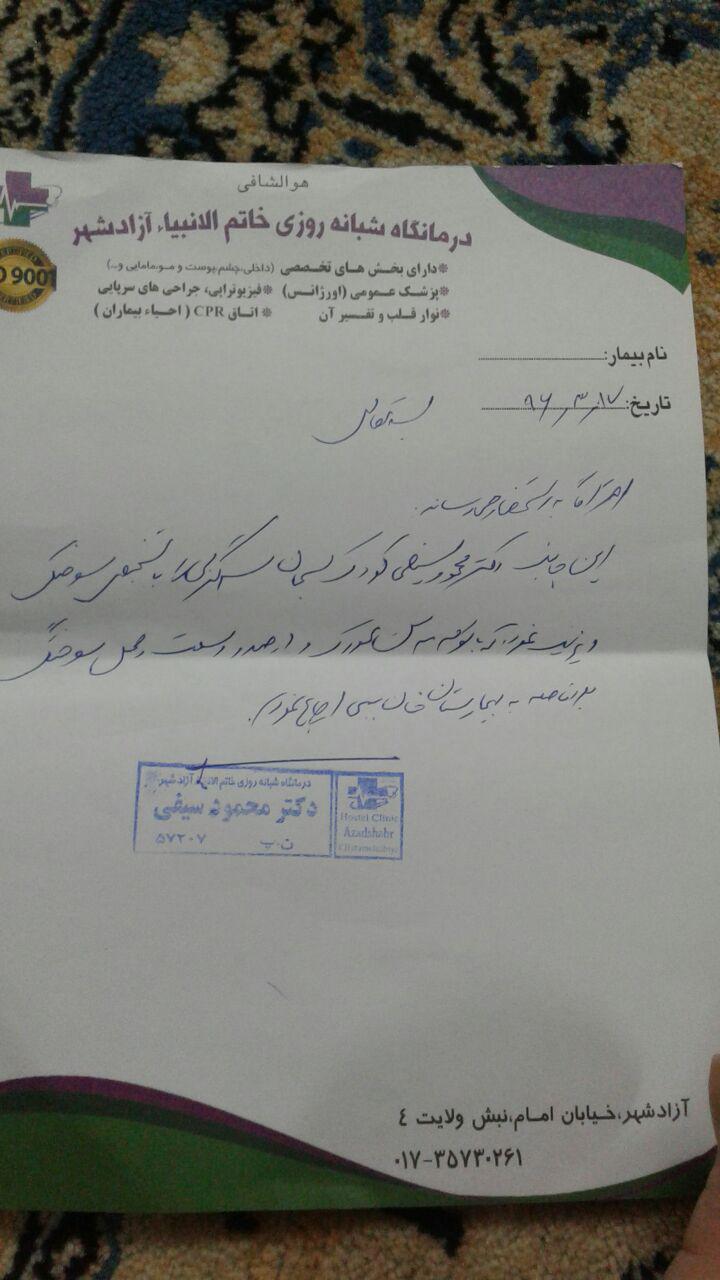 هوالشافی
درمانگاه شبانه روزی خاتم الانبیاء آزادشهر
❋دارای بخش های تخصصی (داخلی،چشم،پوست و مو،مامایی و...)
❋پزشک عمومی (اورژانس) ❋فیزیوتراپی، جراحی های سرپایی
❋نوار قلب و تفسیر آن ❋ اتاق CPR ( احیاء بیماران )
9001
نام بیمار:
تاریخ: ۹۶/۳/۱۷
بسمه تعالی
احتراما به استحضار می رساند
این جانب دکتر محمود سیفی کودک را با تشخیص سوختگی
ویزیت نموده که با توجه به سن کودک و درصد وسعت و محل سوختگی
بلافاصله به بیمارستان خاتم ارجاع نمودم.
درمانگاه شبانه روزی خاتم الانبیاء آزاد شهر
دکتر محمود سیفی
ن.پ ۵۷۲۰۷
Hostel Clinic
Azadshahr
آزادشهر،خیابان امام،نبش ولایت ٤
۰۱۷-۳۵۷۳۰۲۶۱